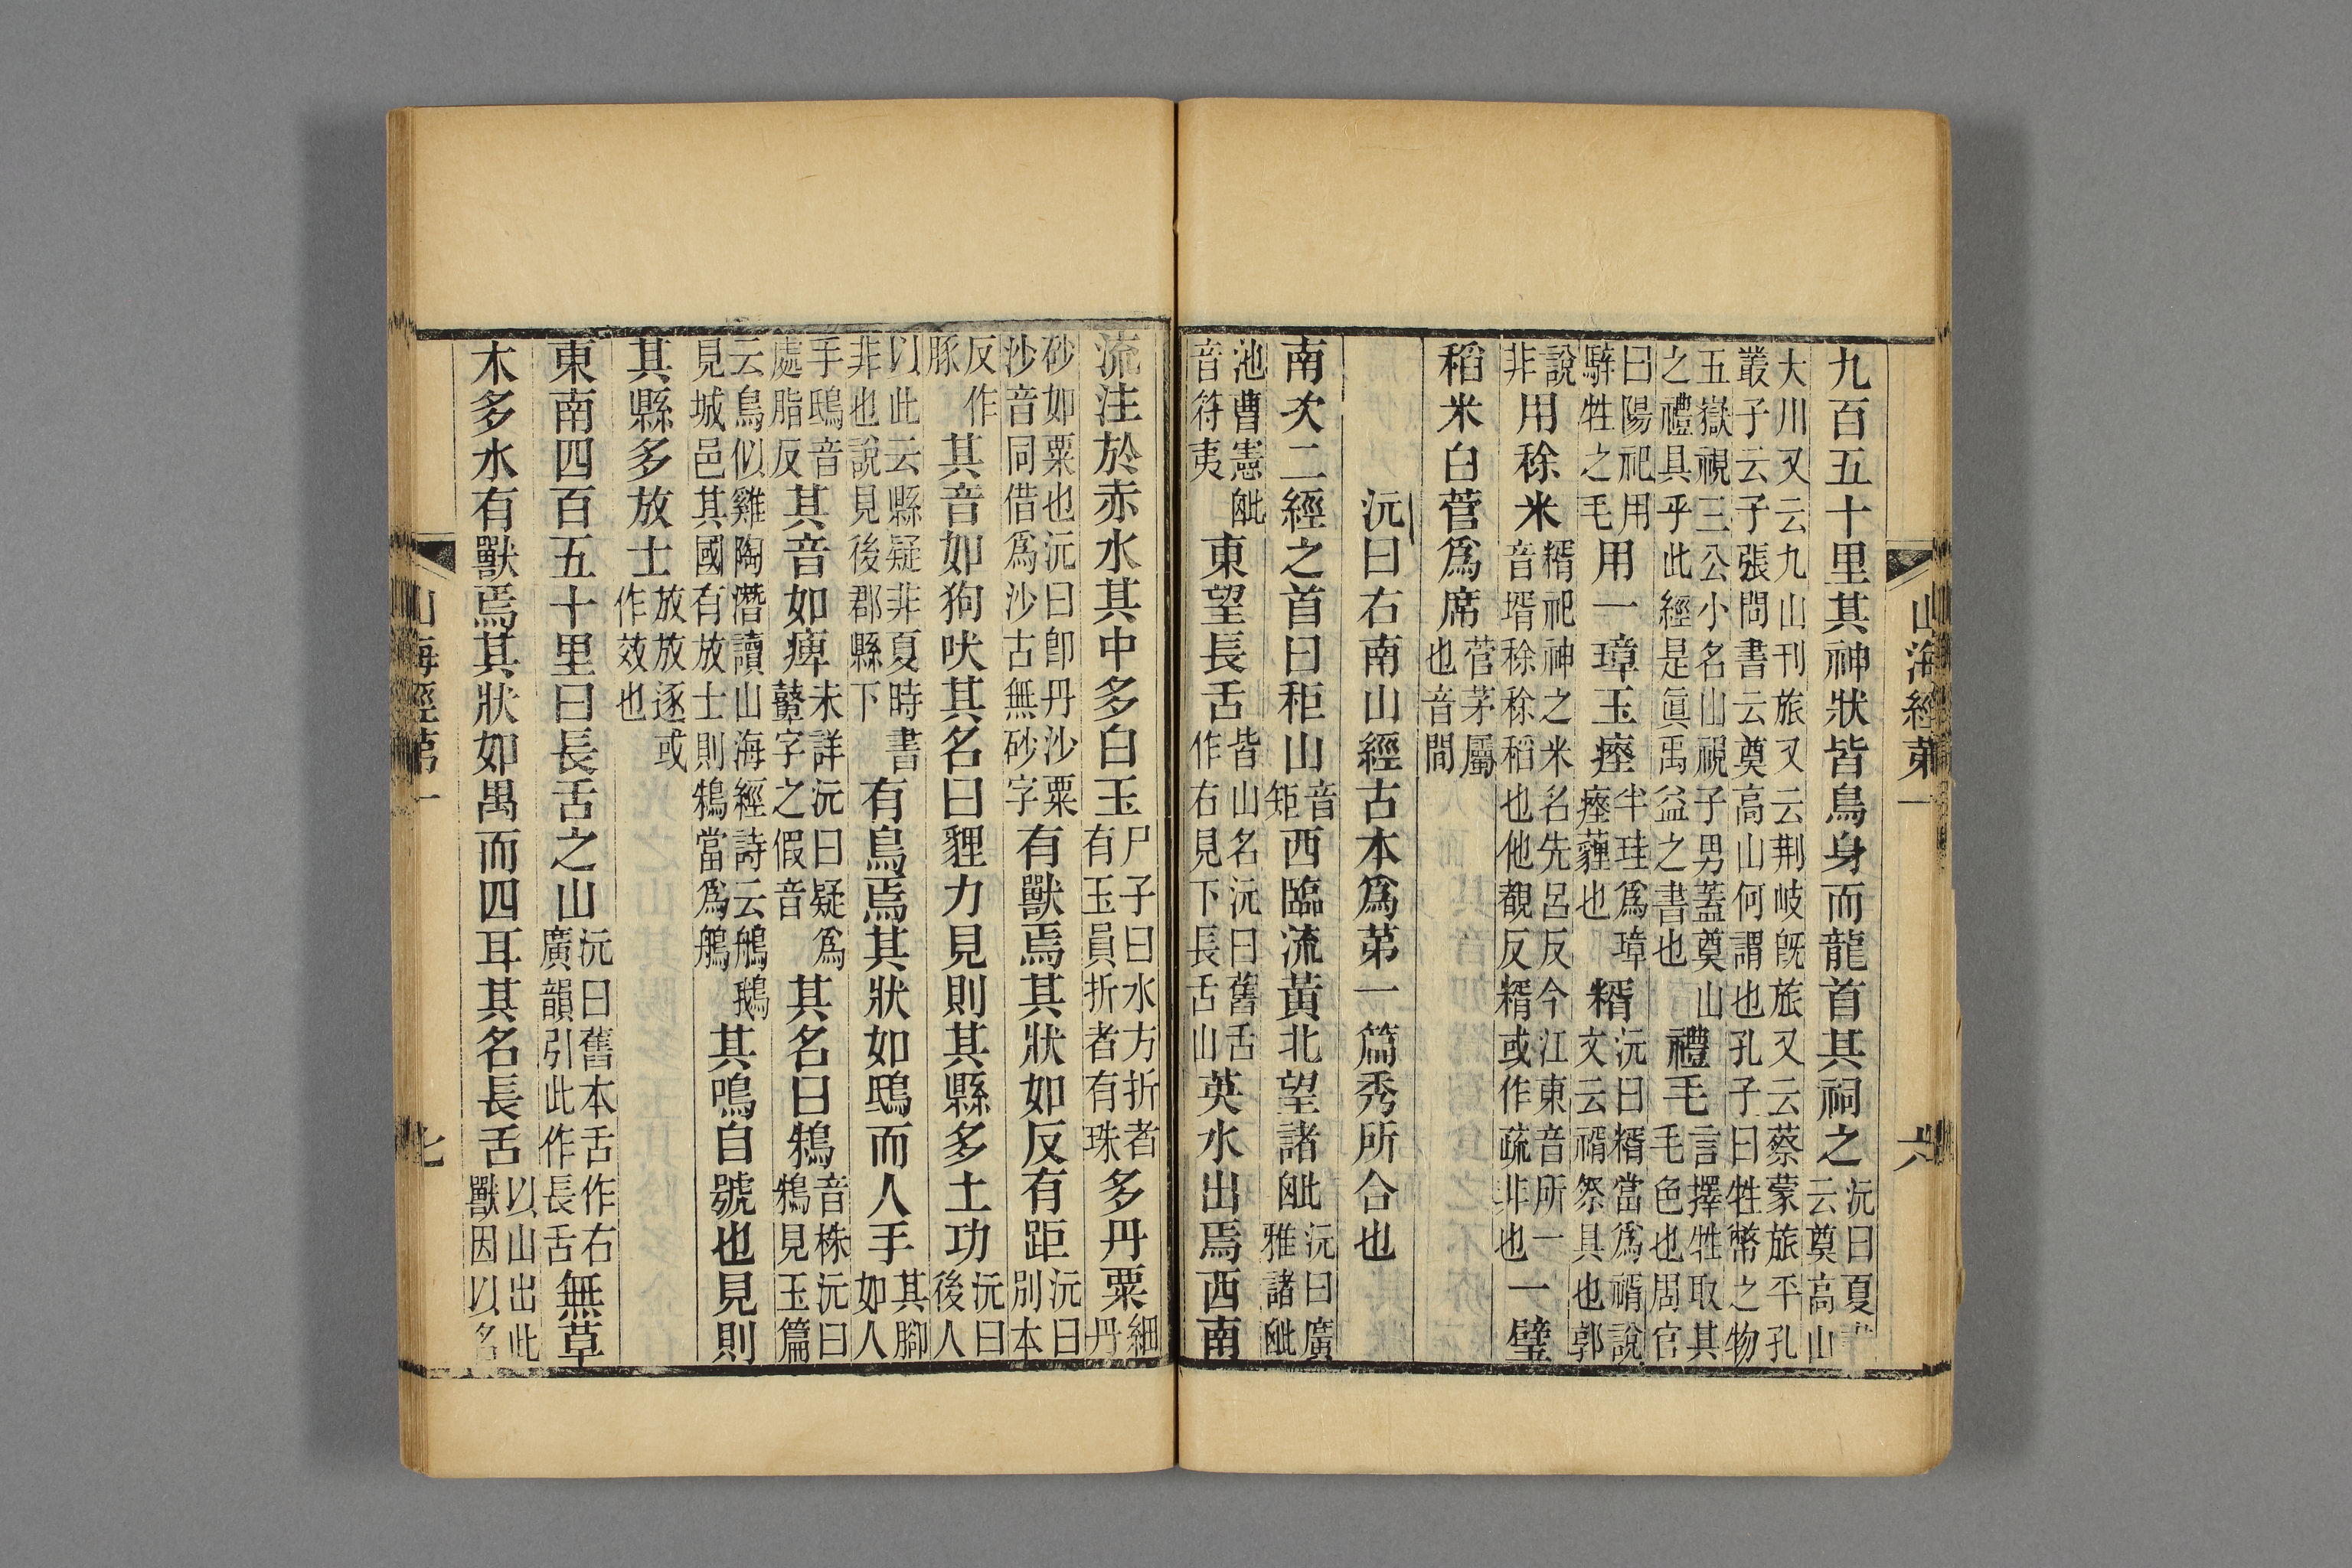 山海經第一
六
九百五十里其神狀皆鳥身而龍首其祠之沅曰夏書云奠高山
大川又云九山刊旅又云荆岐旣旅又云蔡蒙旅平孔叢子云子張問書云奠高山何謂也孔子曰牲幣之物
五嶽視三公小名山視子男蓋奠山之禮具乎此經是眞禹益之書也禮毛言擇牲取其毛色也周官
曰陽祀用騂牲之毛用一璋玉瘞半珪爲璋瘞薶也糈沅曰糈當爲䅵說文云䅵祭具也郭
說非用稌米糈祀神之米名先呂反今江東音所一音壻稌稌稻也他覩反糈或作疏非也一璧
稻米白菅爲席菅茅屬也音間
沅曰右南山經古本爲第一篇秀所合也
南次二經之首曰柜山音矩西臨流黃北望諸𣬈沅曰廣雅諸𣬈
池曹憲𣬈音符夷東望長舌皆山名沅曰舊舌作右見下長舌山英水出焉西南
流注於赤水其中多白玉尸子曰水方折者有玉員折者有珠多丹粟細丹
砂如粟也沅曰卽丹沙粟沙音同借爲沙古無砂字有獸焉其狀如反有距沅曰別本
反作豚其音如狗吠其名曰貍力見則其縣多土功沅曰後人
以此云縣疑非夏時書非也說見後郡縣下有鳥焉其狀如鴟而人手其腳如人
手鴟音處脂反其音如痺未詳沅曰疑爲鼙字之假音其名曰鴸音株沅曰鴸見玉篇
云鳥似雞陶潛讀山海經詩云鵃鵝見城邑其國有放士則鴸當爲鵃其鳴自號也見則
其縣多放士放放逐或作效也
東南四百五十里曰長舌之山沅曰舊本舌作右廣韻引此作長舌無草
木多水有獸焉其狀如禺而四耳其名長舌以山出此獸因以名
山海經第一
七